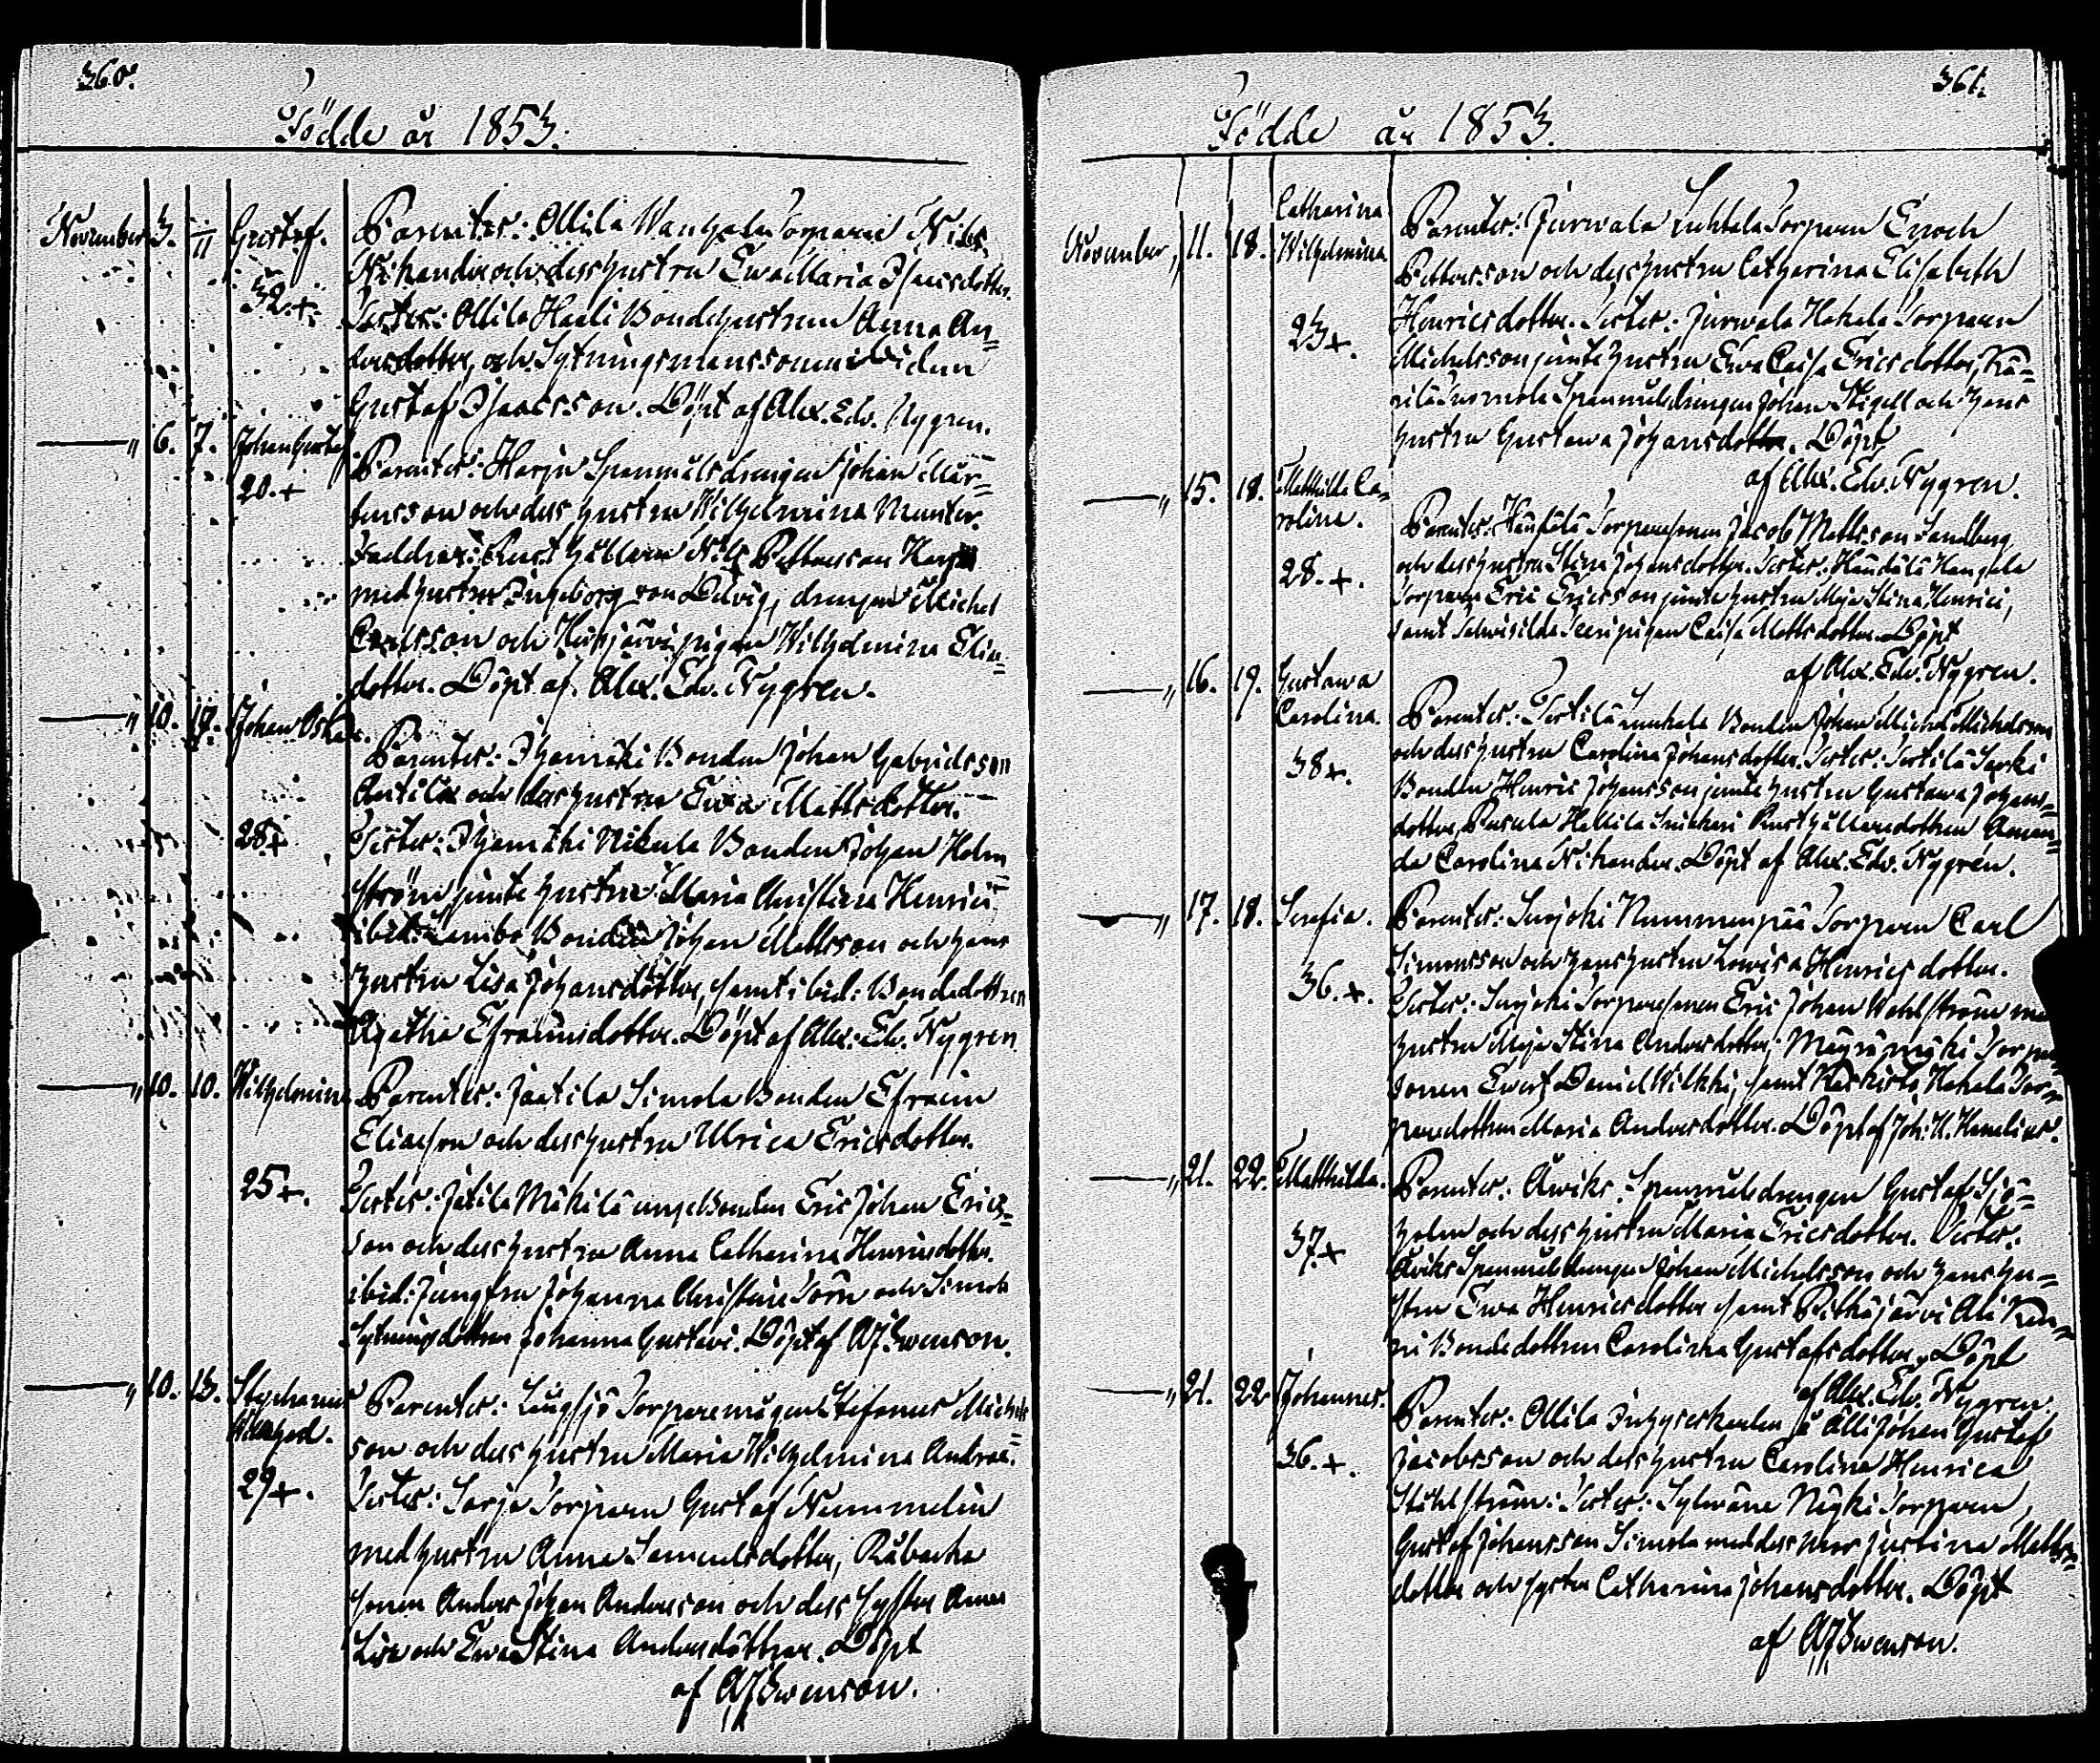 360.
Födde år 1853.
November 3. 11 Gustaf. Parenter: Ollila Torparen Nils
Nikander och dess hustru Ewa Maria Isacsdotter.
32.+. Testes: Ollila Hooli Bondehustrun Anna An-
dersdotter, och Sytningsmanssonen
Gustaf Isaacsson. Döpt af Alex. Edv. Nygren.
" 6. 7. Johan Gustaf Parenter: Harju Spannmålsdrengen Johan Mår-
20.+ tensson och dess hustru Wilhelmina Munter.
Faddrar: Rusthållaren Nils Pettersson Harju
med hustru Ingeborg von Delvig, drengen Michel
Carlsson och pigan Wilhelmina Elias-
dotter. Döpt af. Alex. Edv. Nygren.
" 10. 17. Johan Oskar. Parenter: Ihamäki Bonden Johan Gabrielsson
Antila och dess hustru Ewa Mattsdotter.
28+ Testes: Ihamäki Nikula Bonden Johan Holm-
ström jämte hustru Maria Christina Henrici
ibid: Bonden Johan Mattsson och hans
hustru Lisa Johansdotter, samt ibid: Bondedottren
Agatha Efraimsdotter. Döpt af Alex. Edv. Nygren
" 10. 10. Wilhelmina Parenter: Jaatila Simola Bonden Efraim
Eliasson och dess hustru Ulrica Ericsdotter.
25+. Testes: Jatila Mäkilä unge Bonden Eric Johan Erics-
son och dess hustru Anna Catharina Henricsdotter.
ibid: Jungfru Johanna Christina Törn och Simola
Sytningsdottren Johanna Gustavi. Döpt af AJSwenson.
" 10. 13. Stephanus Parenter: Långsjö Torparemågen Stefanus Michels-
son och dess hustru Maria Wilhelmina Andreae.
29+. Testes: Sorja Torparen Gustaf Nummelin
med hustru Anna Samuelsdotter, Råbacka
sonen Anders Johan Andersson och dess syster Anna
Lisa och Ewa Stina Andersdöttrar. Döpt
af AJSwenson.
361.
Födde år 1853.
November, 11. 18. Catharina
Wilhelmina. Parenter: Jurwala Luhtala Torparen Enoch
Pettersson och dess hustru Catharina Elisabeth
23+. Henricsdotter. Testes: Jurwala Hakala Torparen
Michelsson jämte hustru Ewa Caisa Ericsdotter, Kä-
rilä Suomola Spannmålsdrengen Johan Stigell och hans
hustru Gustawa Johansdotter. Döpt
af Alex. Edv. Nygren.
" 15. 18. Mathilda Ca-
rolina. Parenter: Torparesonen Jacob Mattsson Sandberg
28.+. och dess hustru Stina Johansdotter. Testes: Kangola
Torparen Eric Ericsson jämte hustru Maja Stina Henrici,
samt pigan Caisa Mattsdotter. Döpt
af Alex. Edv. Nygren.
" 16. 19. Gustawa
Carolina. Parenter: Tertilä Bonden Johan Michel Michelsson
och dess hustru Carolina Johansdotter. Testes: Tertilä Sarki
38+. Bonden Henric Johansson jämte hustru Gustawa Johans-
dotter, Pusula Hattila Rusthållaredottren Aman-
da Carolina Nikander. Döpt af Alex. Edv. Nygren.
" 17. 18. Serafia. Parenter: Suojoki Nummenpää Torparen Carl
Simonsson och hans hustru Lowisa Henricsdotter.
36.+. Testes: Suojoki Torparesonen Eric Johan Wahlström med
hustru Maja Stina Andersdotter; Torpare-
sonen Ewert Daniel Wilkki, samt Hakala Tor-
paredottren Maria Andersdotter. Döpt af Joh. H. Hamelius.
" 21. 22. Mathilda. Parenter: Åwiks Spannmålsdrengen Gustaf Sjö-
holm och dess hustru Maria Ericsdotter. Testes:
37.+ Åwiks Spannmålsdrengen Johan Michelsson och hans hu-
stru Ewa Henricsdotter samt Pitkäjärvi Ali Ren-
ni Bondedottren Carolina Gustafsdotter. Döpt
af Alex. Edv. Nygren.
" 21. 22 Johannes. Parenter: Ollila Inhyseskarlen på Alli Johan Gustaf
36.+. Jacobsson och dess hustru Carolina Henrica
Stählström. Testes: Torparen
Gustaf Johansson Simola med dess mor Justina Matts-
dotter och syster Catharina Johansdotter. Döpt
af AJSwenson.